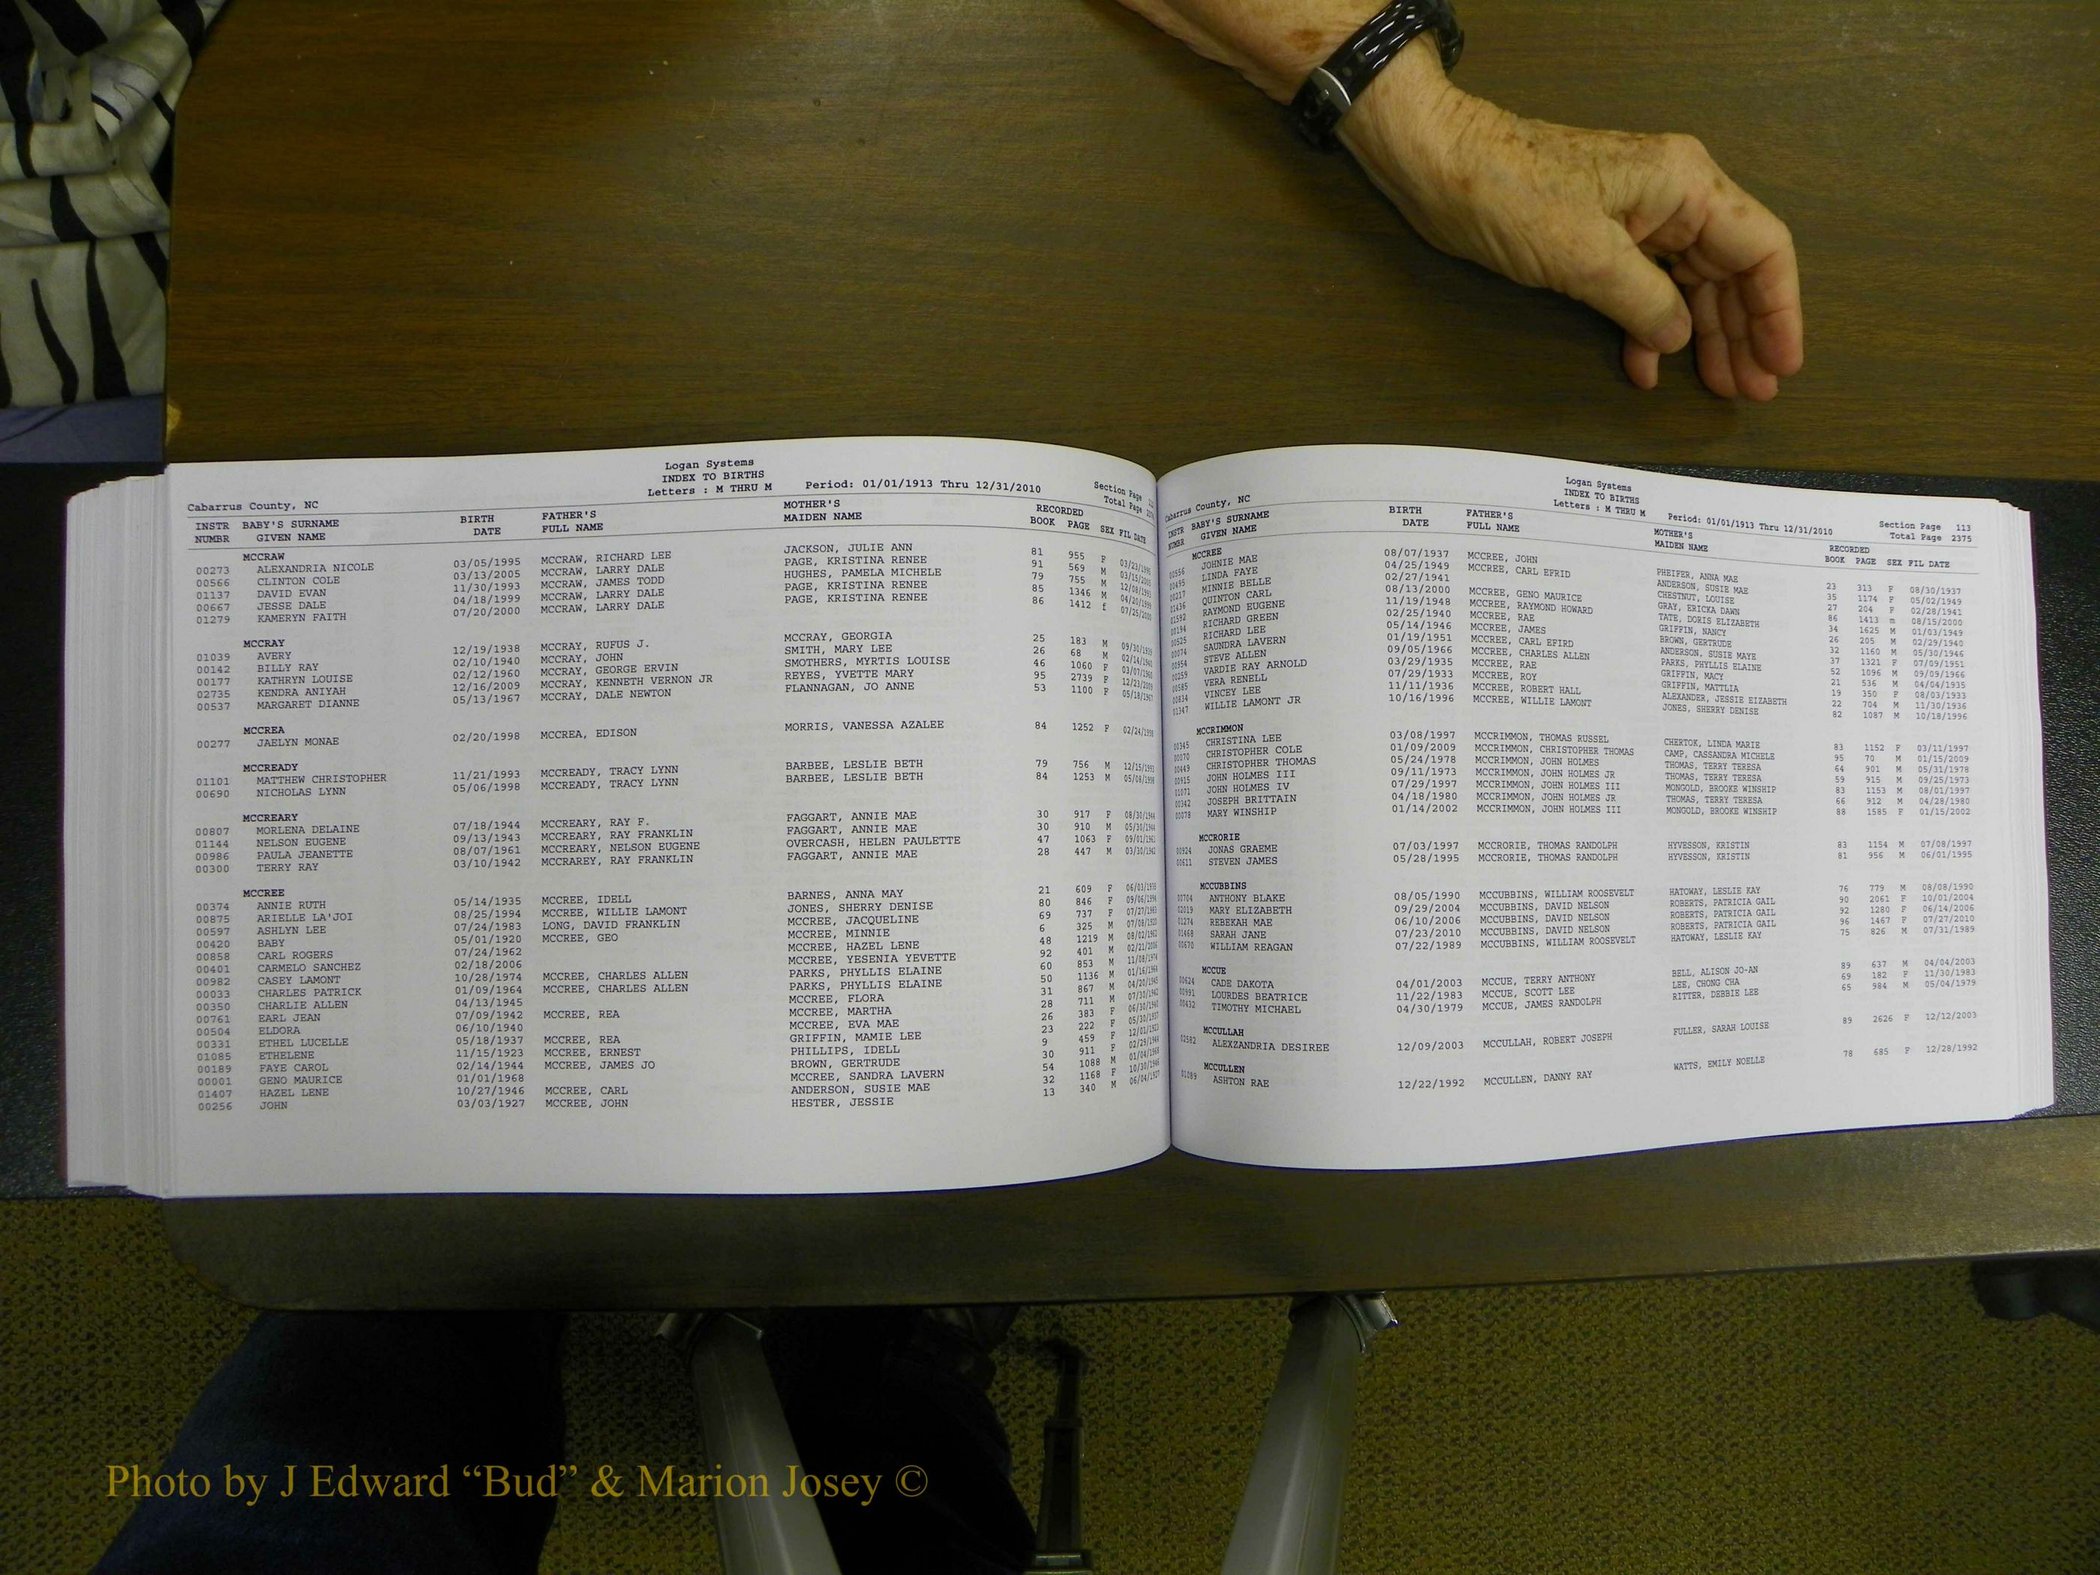 Logan Systems
INDEX TO BIRTHS
Cabarrus County, NC Letters : M THRU M Period: 01/01/1913 Thru 12/31/2010 Section Page
Total Page
INSTR BABY'S SURNAME BIRTH FATHER'S MOTHER'S RECORDED
NUMBR GIVEN NAME DATE FULL NAME MAIDEN NAME BOOK PAGE SEX FIL DATE
MCCRAW
00273 ALEXANDRIA NICOLE 03/05/1995 MCCRAW, RICHARD LEE JACKSON, JULIE ANN 81 955 F 03/23/1995
00566 CLINTON COLE 03/13/2005 MCCRAW, LARRY DALE PAGE, KRISTINA RENEE 91 569 M 03/15/2005
01137 DAVID EVAN 11/30/1993 MCCRAW, JAMES TODD HUGHES, PAMELA MICHELE 79 755 M 12/08/1993
00667 JESSE DALE 04/18/1999 MCCRAW, LARRY DALE PAGE, KRISTINA RENEE 85 1346 M 04/20/1999
01279 KAMERYN FAITH 07/20/2000 MCCRAW, LARRY DALE PAGE, KRISTINA RENEE 86 1412 f 07/25/2000
MCCRAY
01039 AVERY 12/19/1938 MCCRAY, RUFUS J. MCCRAY, GEORGIA 25 183 M
00142 BILLY RAY 02/10/1940 MCCRAY, JOHN SMITH, MARY LEE 26 68 M 02/14/1940
00177 KATHRYN LOUISE 02/12/1960 MCCRAY, GEORGE ERVIN SMOTHERS, MYRTIS LOUISE 46 1060 F 03/07/1960
02735 KENDRA ANIYAH 12/16/2009 MCCRAY, KENNETH VERNON JR REYES, YVETTE MARY 95 2739 F 12/23/2009
00537 MARGARET DIANNE 05/13/1967 MCCRAY, DALE NEWTON FLANNAGAN, JO ANNE 53 1100 F 05/18/1967
MCCREA
00277 JAELYN MONAE 02/20/1998 MCCREA, EDISON MORRIS, VANESSA AZALEE 84 1252 F 02/24/1998
MCCREADY
01101 MATTHEW CHRISTOPHER 11/21/1993 MCCREADY, TRACY LYNN BARBEE, LESLIE BETH 79 756 M 12/15/1993
00690 NICHOLAS LYNN 05/06/1998 MCCREADY, TRACY LYNN BARBEE, LESLIE BETH 84 1253 M 05/08/1998
MCCREARY
00807 MORLENA DELAINE 07/18/1944 MCCREARY, RAY F. FAGGART, ANNIE MAE 30 917 F 08/30/1944
01144 NELSON EUGENE 09/13/1943 MCCREARY, RAY FRANKLIN FAGGART, ANNIE MAE 30 910 M 05/30/1944
00986 PAULA JEANETTE 08/07/1961 MCCREARY, NELSON EUGENE OVERCASH, HELEN PAULETTE 47 1063 F 09/01/1961
00300 TERRY RAY 03/10/1942 MCCRAREY, RAY FRANKLIN FAGGART, ANNIE MAE 28 447 M 03/30/1942
MCCREE
00374 ANNIE RUTH 05/14/1935 MCCREE, IDELL BARNES, ANNA MAY 21 609 F
00875 ARIELLE LA'JOI 08/25/1994 MCCREE, WILLIE LAMONT JONES, SHERRY DENISE 80 846 F 09/06/1994
00597 ASHLYN LEE 07/24/1983 LONG, DAVID FRANKLIN MCCREE, JACQUELINE 69 737 F 07/27/1983
00420 BABY 05/01/1920 MCCREE, GEO MCCREE, MINNIE 6 325 M
00858 CARL ROGERS 07/24/1962 MCCREE, HAZEL LENE 48 1219 M 08/02/1962
00401 CARMELO SANCHEZ 02/18/2006 MCCREE, YESENIA YEVETTE 92 401 M 02/21/2006
00982 CASEY LAMONT 10/28/1974 MCCREE, CHARLES ALLEN PARKS, PHYLLIS ELAINE 60 853 M 11/08/1974
00033 CHARLES PATRICK 01/09/1964 MCCREE, CHARLES ALLEN PARKS, PHYLLIS ELAINE 50 1136 M 01/16/1964
00350 CHARLIE ALLEN 04/13/1945 MCCREE, FLORA 31 867 M 04/20/1945
00761 EARL JEAN 07/09/1942 MCCREE, REA MCCREE, MARTHA 28 711 M 07/30/1942
00504 ELDORA 06/10/1940 MCCREE, EVA MAE 26 383 F 06/30/1940
00331 ETHEL LUCELLE 05/18/1937 MCCREE, REA GRIFFIN, MAMIE LEE 23 222 F 05/30/1937
01085 ETHELENE 11/15/1923 MCCREE, ERNEST PHILLIPS, IDELL 9 459 F 12/01/1923
00189 FAYE CAROL 02/14/1944 MCCREE, JAMES JO BROWN, GERTRUDE 30 911 F 02/29/1944
00001 GENO MAURICE 01/01/1968 MCCREE, SANDRA LAVERN 54 1088 M 01/04/1968
01407 HAZEL LENE 10/27/1946 MCCREE, CARL ANDERSON, SUSIE MAE 32 1168 F 10/30/1946
00256 JOHN 03/03/1927 MCCREE, JOHN HESTER, JESSIE 13 340 M 06/04/1927
Logan Systems
INDEX TO BIRTHS
Cabarrus County, NC Letters : M THRU M Period: 01/01/1913 Thru 12/31/2010 Section Page 113
Total Page 2375
INSTR BABY'S SURNAME BIRTH FATHER'S MOTHER'S RECORDED
NUMBR GIVEN NAME DATE FULL NAME MAIDEN NAME BOOK PAGE SEX FIL DATE
MCCREE
00556 JOHNIE MAE 08/07/1937 MCCREE, JOHN PHEIFER, ANNA MAE 23 313 F 08/30/1937
00495 LINDA FAYE 04/25/1949 MCCREE, CARL EFRID ANDERSON, SUSIE MAE 35 1174 F 05/02/1949
00217 MINNIE BELLE 02/27/1941 CHESTNUT, LOUISE 27 204 F 02/28/1941
01436 QUINTON CARL 08/13/2000 MCCREE, GENO MAURICE GRAY, ERICKA DAWN 86 1413 m 08/15/2000
01592 RAYMOND EUGENE 11/19/1948 MCCREE, RAYMOND HOWARD TATE, DORIS ELIZABETH 34 1625 M 01/03/1949
00194 RICHARD GREEN 02/25/1940 MCCREE, RAE GRIFFIN, NANCY 26 205 M 02/29/1940
00525 RICHARD LEE 05/14/1946 MCCREE, JAMES BROWN, GERTRUDE 32 1160 M 05/30/1946
00074 SAUNDRA LAVERN 01/19/1951 MCCREE, CARL EFIRD ANDERSON, SUSIE MAYE 37 1321 F 07/09/1951
00954 STEVE ALLEN 09/05/1966 MCCREE, CHARLES ALLEN PARKS, PHYLLIS ELAINE 52 1096 M 09/09/1966
00259 VARDIE RAY ARNOLD 03/29/1935 MCCREE, RAE GRIFFIN, MACY 21 536 M 04/04/1935
00585 VERA RENELL 07/29/1933 MCCREE, ROY GRIFFIN, MATTLIA 19 350 F 08/03/1933
00834 VINCEY LEE 11/11/1936 MCCREE, ROBERT HALL ALEXANDER, JESSIE EIZABETH 22 704 M 11/30/1936
01347 WILLIE LAMONT JR 10/16/1996 MCCREE, WILLIE LAMONT JONES, SHERRY DENISE 82 1087 M 10/18/1996
MCCRIMMON
00345 CHRISTINA LEE 03/08/1997 MCCRIMMON, THOMAS RUSSEL CHERTOK, LINDA MARIE 83 1152 F 03/11/1997
00070 CHRISTOPHER COLE 01/09/2009 MCCRIMMON, CHRISTOPHER THOMAS CAMP, CASSANDRA MICHELE 95 70 M 01/15/2009
00449 CHRISTOPHER THOMAS 05/24/1978 MCCRIMMON, JOHN HOLMES THOMAS, TERRY TERESA 64 901 M 05/31/1978
00915 JOHN HOLMES III 09/11/1973 MCCRIMMON, JOHN HOLMES JR THOMAS, TERRY TERESA 59 915 M 09/25/1973
01071 JOHN HOLMES IV 07/29/1997 MCCRIMMON, JOHN HOLMES III MONGOLD, BROOKE WINSHIP 83 1153 M 08/01/1997
00342 JOSEPH BRITTAIN 04/18/1980 MCCRIMMON, JOHN HOLMES JR THOMAS, TERRY TERESA 66 912 M 04/28/1980
00078 MARY WINSHIP 01/14/2002 MCCRIMMON, JOHN HOLMES III MONGOLD, BROOKE WINSHIP 88 1585 F 01/15/2002
MCCRORIE
00924 JONAS GRAEME 07/03/1997 MCCRORIE, THOMAS RANDOLPH HYVESSON, KRISTIN 83 1154 M 07/08/1997
00611 STEVEN JAMES 05/28/1995 MCCRORIE, THOMAS RANDOLPH HYVESSON, KRISTIN 81 956 M 06/01/1995
MCCUBBINS
00704 ANTHONY BLAKE 08/05/1990 MCCUBBINS, WILLIAM ROOSEVELT HATOWAY, LESLIE KAY 76 779 M 08/08/1990
02019 MARY ELIZABETH 09/29/2004 MCCUBBINS, DAVID NELSON ROBERTS, PATRICIA GAIL 90 2061 F 10/01/2004
01274 REBEKAH MAE 06/10/2006 MCCUBBINS, DAVID NELSON ROBERTS, PATRICIA GAIL 92 1280 F 06/14/2006
01468 SARAH JANE 07/23/2010 MCCUBBINS, DAVID NELSON ROBERTS, PATRICIA GAIL 96 1467 F 07/27/2010
00670 WILLIAM REAGAN 07/22/1989 MCCUBBINS, WILLIAM ROOSEVELT HATOWAY, LESLIE KAY 75 826 M 07/31/1989
MCCUE
00624 CADE DAKOTA 04/01/2003 MCCUE, TERRY ANTHONY BELL, ALISON JO-AN 89 637 M 04/04/2003
00991 LOURDES BEATRICE 11/22/1983 MCCUE, SCOTT LEE LEE, CHONG CHA 69 182 F 11/30/1983
00432 TIMOTHY MICHAEL 04/30/1979 MCCUE, JAMES RANDOLPH RITTER, DEBBIE LEE 65 984 M 05/04/1979
MCCULLAH
02582 ALEXZANDRIA DESIREE 12/09/2003 MCCULLAH, ROBERT JOSEPH FULLER, SARAH LOUISE 89 2626 F 12/12/2003
MCCULLEN
01089 ASHTON RAE 12/22/1992 MCCULLEN, DANNY RAY WATTS, EMILY NOELLE 78 685 F 12/28/1992
Photo by J Edward “Bud” & Marion Josey ©